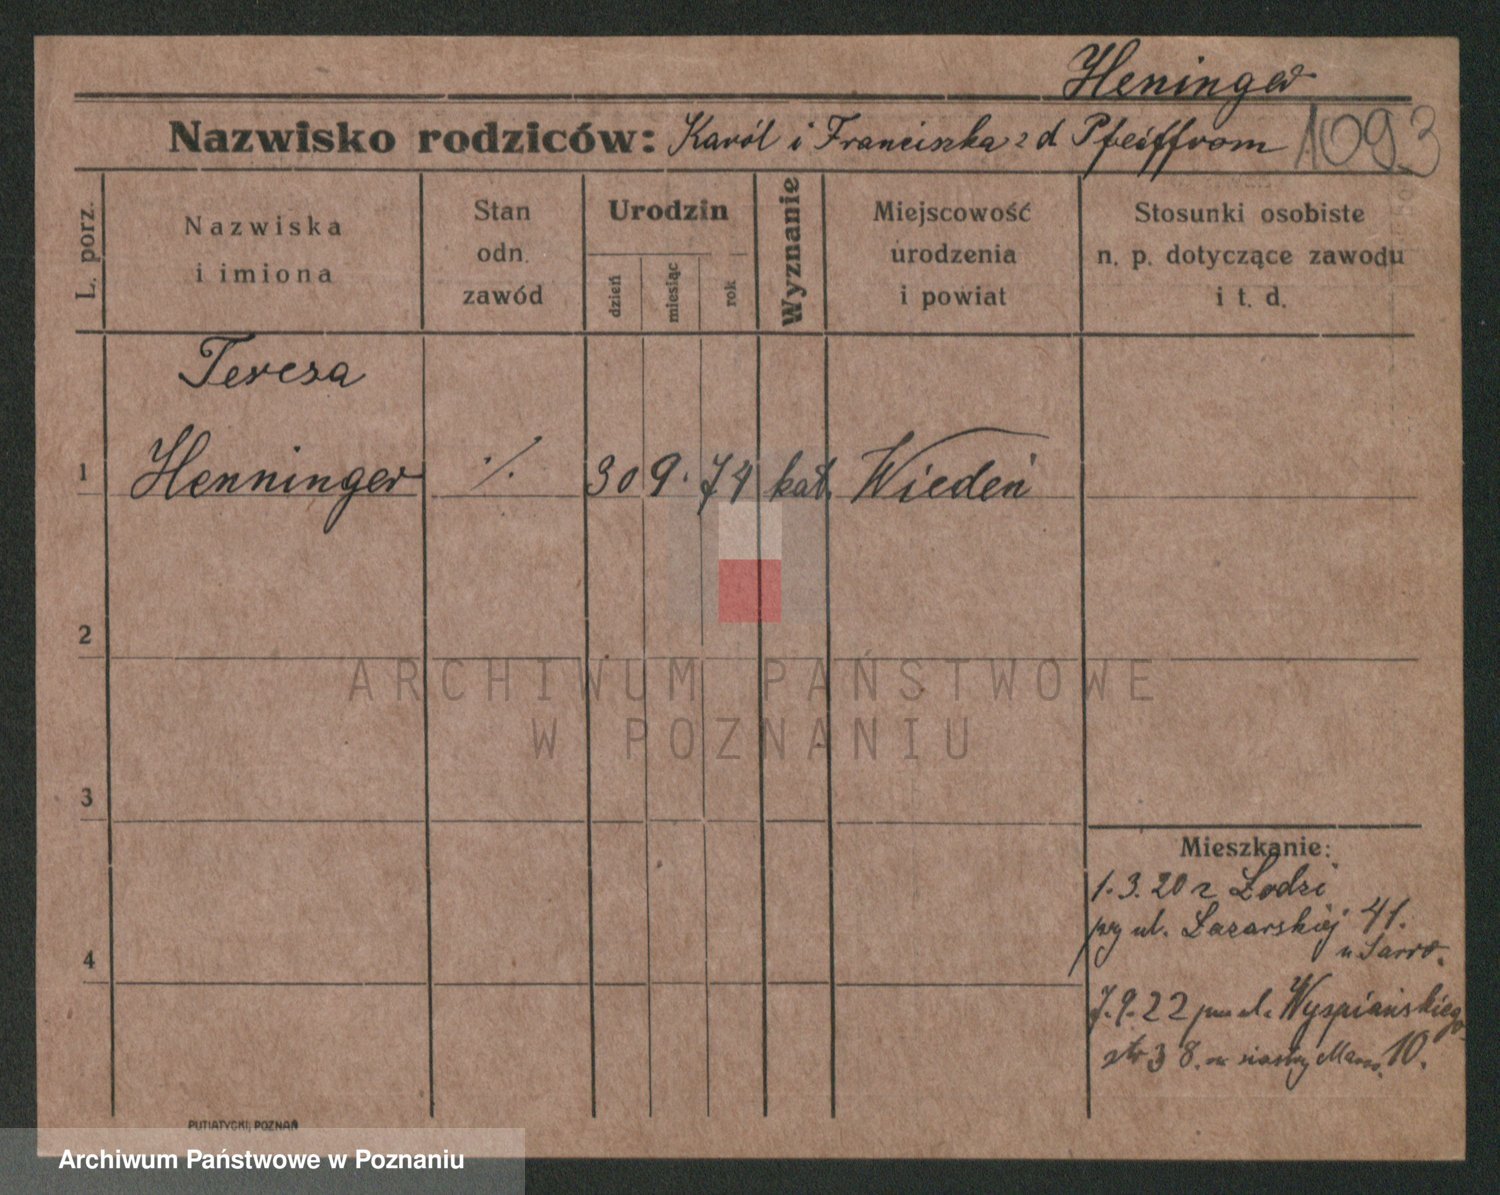 Heninger
Nazwisko rodziców: Karól i Franciszka z d Pfeiffrom 1093
L. porz.
Nazwiska
i imiona
Stan
odn.
zawód
Urodzin
dzień
miesiąc
rok
Wyznanie
Miejscowość
urodzenia
i powiat
Stosunki osobiste
n. p. dotyczące zawodu
i t. d.
Teresa
1 Henninger ./. 30 9. 74 kat. Wiedeń
2
3
4
ARCHIWUM PAŃSTWOWE
W POZNANIU
Mieszkanie:
1.3.20 z Łodzi
przy ul. Łazarskiej 41.
7.9.22 Wyspiańskiego
8. siostry 10.
PUTIATYCKI, POZNAŃ
Archiwum Państwowe w Poznaniu